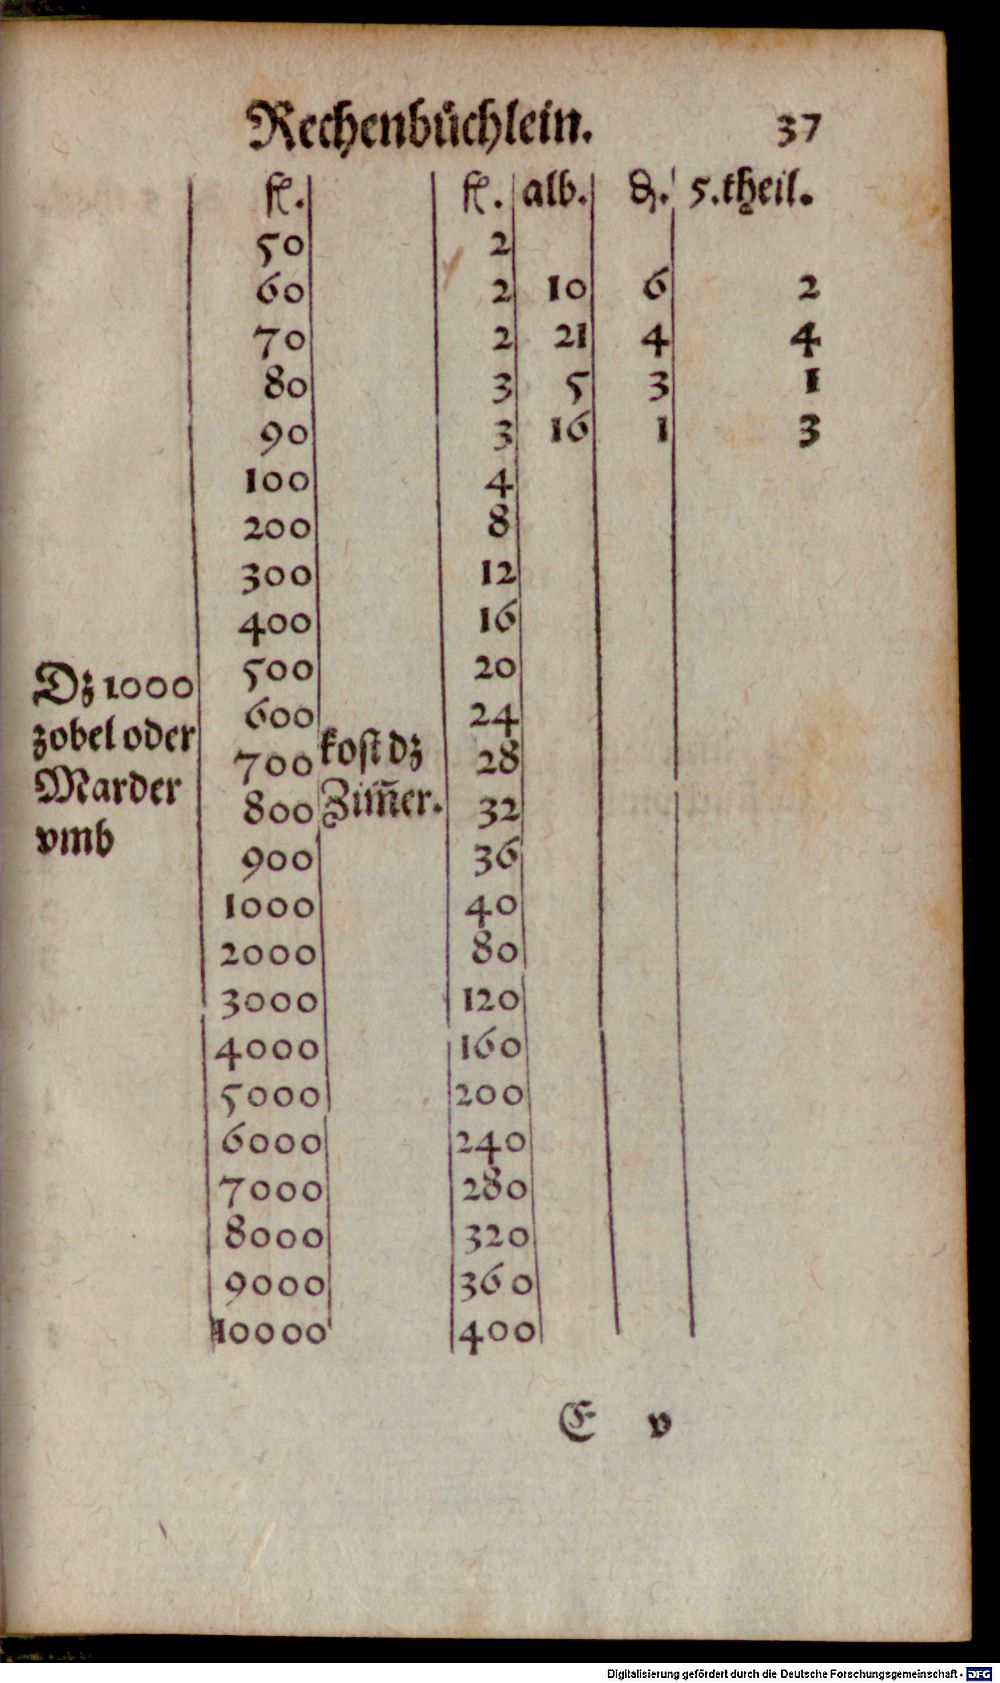 Rechenbüchlein. 37
fl. fl. alb. ₰. 5.theil.
50 2
60 2 10 6 2
70 2 21 4 4
80 3 5 3 1
90 3 16 1 3
100 4
200 8
300 12
400 16
Dz 1000 500 20
zobel oder 600 24
Marder 700 kost dz 28
vmb 800 Zim̃er. 32
900 36
1000 40
2000 80
3000 120
4000 160
5000 200
6000 240
7000 280
8000 320
9000 360
10000 400
E v
Digitalisierung gefördert durch die Deutsche Forschungsgemeinschaft - DFG